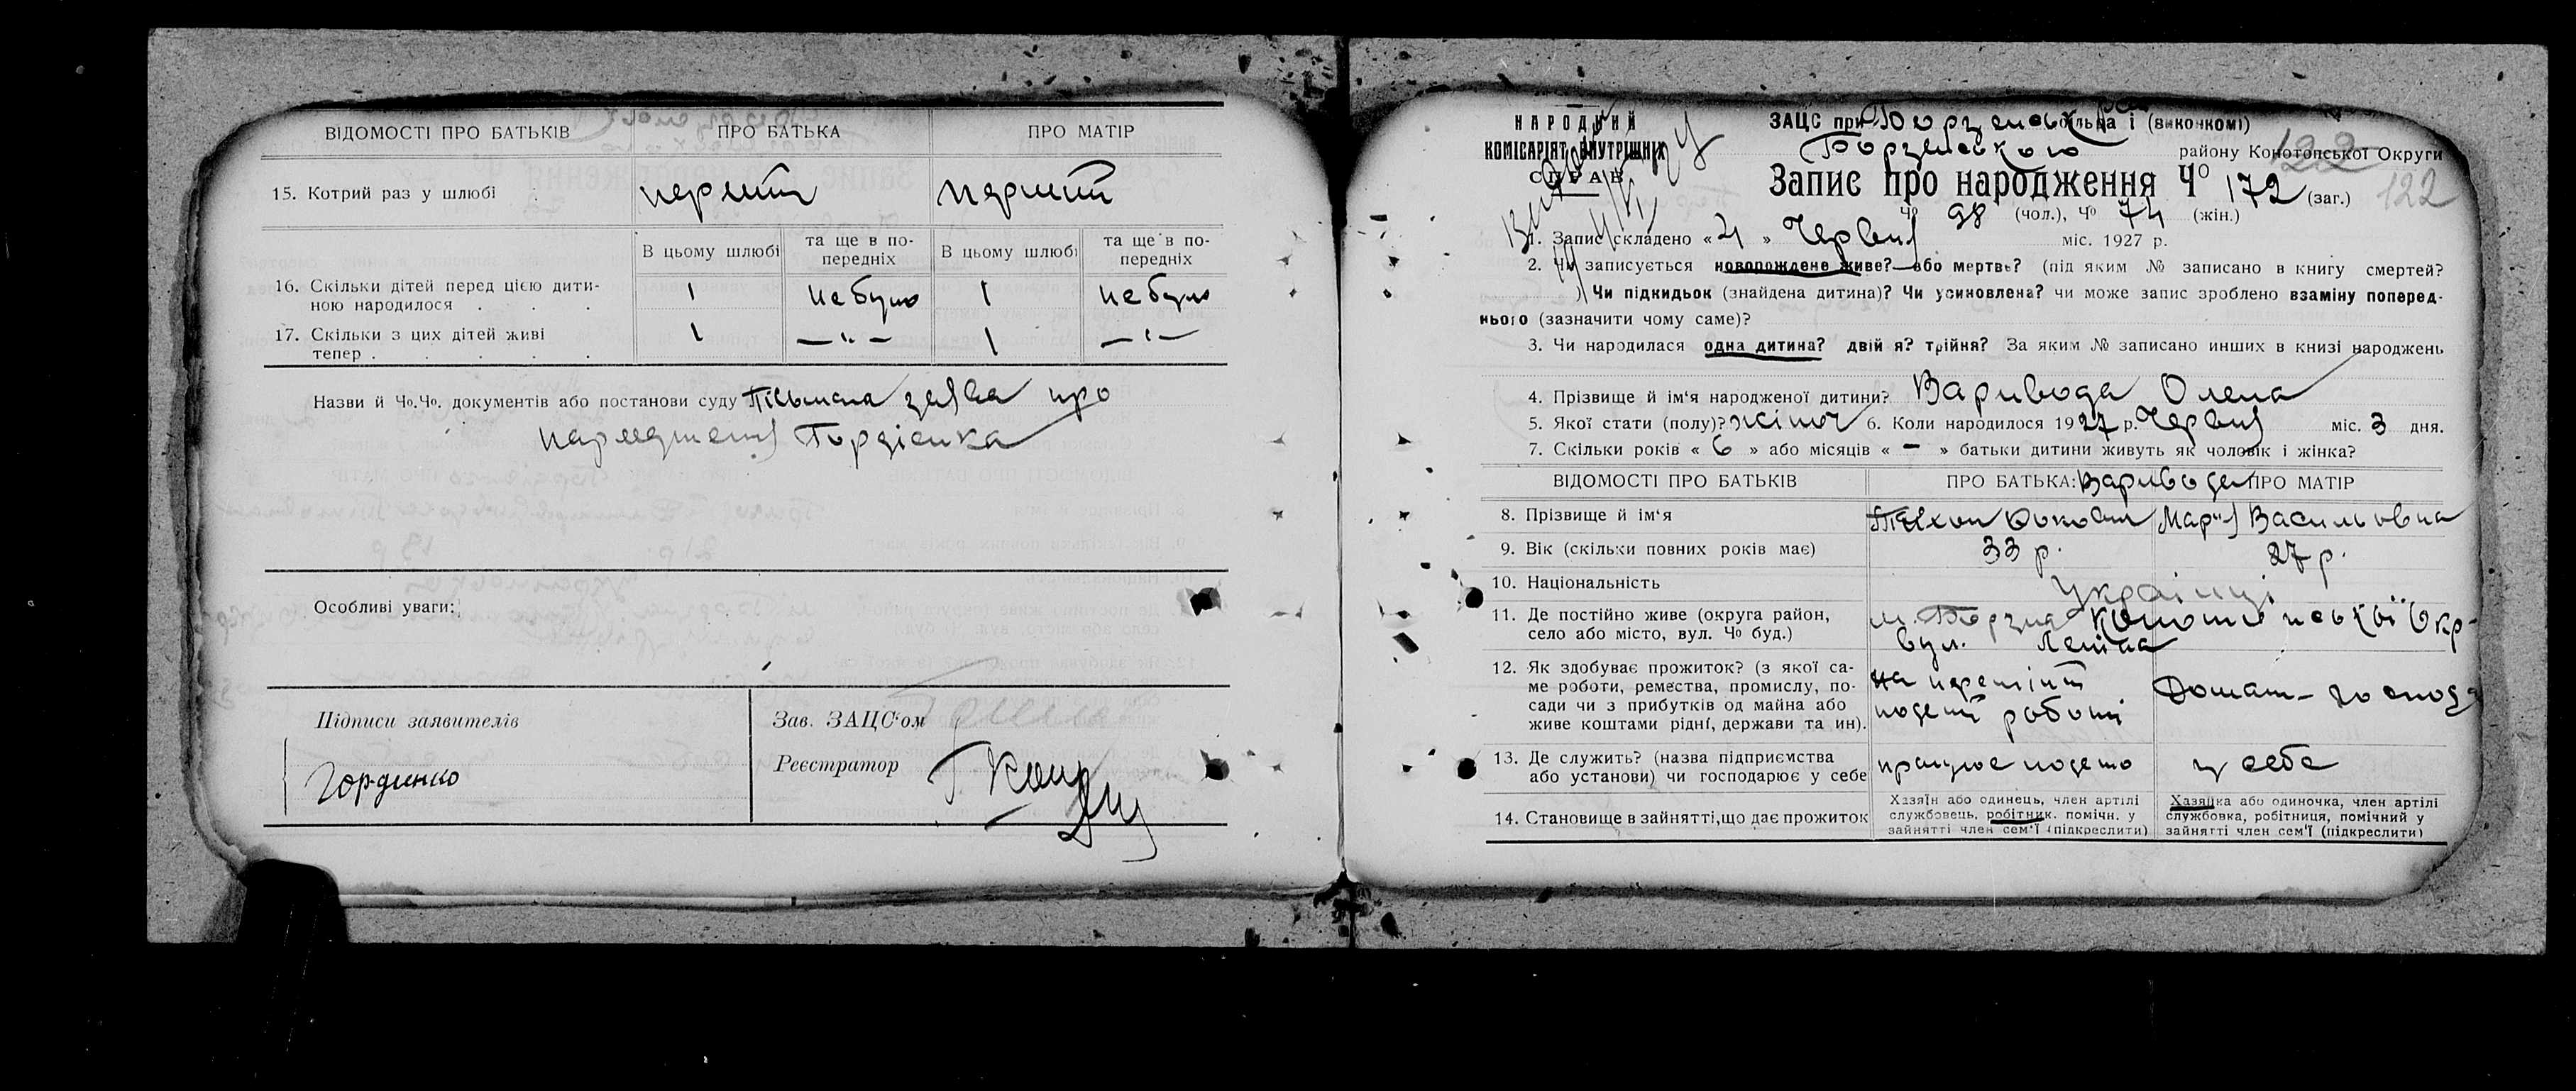 ВІДОМОСТІ ПРО БАТЬКІВ ПРО БАТЬКА ПРО МАТІР
15. Котрий раз у шлюбі . перший перший
В цьому шлюбі та ще в по-передніх В цьому шлюбі та ще в по-передніх
16. Скільки дітей перед цією дити-
ною народилося . . . 1 не було 1 не було
17. Скільки з цих дітей живі
тепер . . . . . 1 — " — 1 — " —
Назви й Чо.Чо. документів або постанови суду Письмена заява про
народження Гордієнка
Особливі уваги:
Підписи заявителів
Гордиенко
Зав. ЗАЦС'ом
Реєстратор
НАРОДНИЙ
КОМІСАРІЯТ ВНУТРІШНІХ
СПРАВ
ЗАЦС при Борзенськ і (виконкомі)
Борзенського району Конотопської Округи
122
122
Запис про народження Чо 172 (заг.)
Чо 98 (чол.), Чо 74 (жін.)
1. Запис складено « 4 » Червня міс. 1927 р.
2. Чи записується новорождене живе? або мертве? (під яким № записано в книгу смертей?
) Чи підкидьок (знайдена дитина)? Чи усиновлена? чи може запис зроблено взаміну поперед-
нього (зазначити чому саме)?
3. Чи народилася одна дитина? двій я? трійня? За яким № записано инших в книзі народжень
4. Прізвище й ім'я народженої дитини? Варивода Олена
5. Якої стати (полу)? жіноч 6. Коли народилося 1927 р. Червня міс. 3 дня.
7. Скільки років « 6 » або місяців « – » батьки дитини живуть як чоловік і жінка?
ВІДОМОСТІ ПРО БАТЬКІВ ПРО БАТЬКА: Вариводи ПРО МАТІР
8. Прізвище й ім'я Тихон Марія Васильовна
9. Вік (скільки повних років має) 33 р. 27 р.
10. Національність Українці
11. Де постійно живе (округа район,
село або місто, вул. Чо буд.) м. Борзна Конотопської Окр.
вул. Леніна
12. Як здобуває прожиток? (з якої са-
ме роботи, ремества, промислу, по-
сади чи з прибутків од майна або
живе коштами рідні, держави та ин).
роботі
Домаш– господ
13. Де служить? (назва підприємства
або установи) чи господарює у себе працює у себе
14. Становище в зайнятті, що дає прожиток
Хазяїн або одинець, член артілі
службовець, робітник. помічн. у
зайнятті член сем'ї (підкреслити)
Хазяйка або одиночка, член артілі
службовка, робітниця, помічний у
зайнятті член сем'ї (підкреслити)